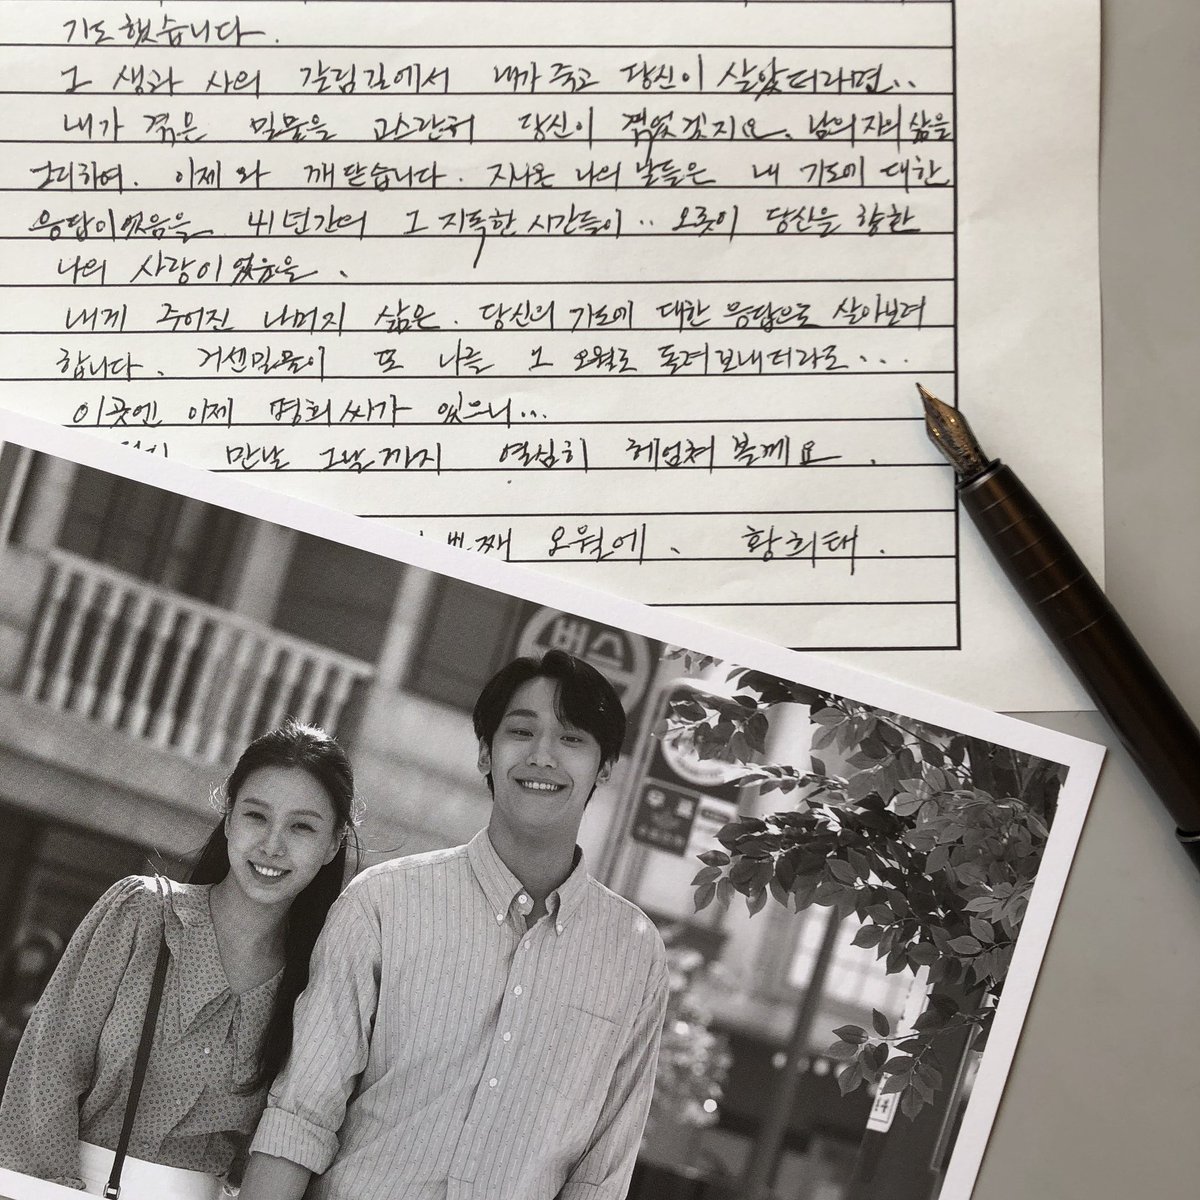 기도했습니다.
그 생과 사의 갈림길에서 내가 죽고 당신이 살았더라면..
내가 겪은 밀물을 고스란히 당신이 겪었겠지요. 남의자의 삶을
그리하여. 이제와 깨닫습니다. 지나온 나의 날들은 내 기도에 대한
응답이었음을. 41년간의 그 지독한 시간들이.. 오롯이 당신을 향한
나의 사랑이었음을.
내게 주어진 나머지 삶은. 당신의 기도에 대한 응답으로 살아보려
합니다. 거센밀물이 또 나를 그 오월로 돌려보내더라도...
이곳엔 이제 명희씨가 있으니...
만날 그날까지 열심히 헤엄쳐볼께요.
번째 오월에. 황희태.
버스